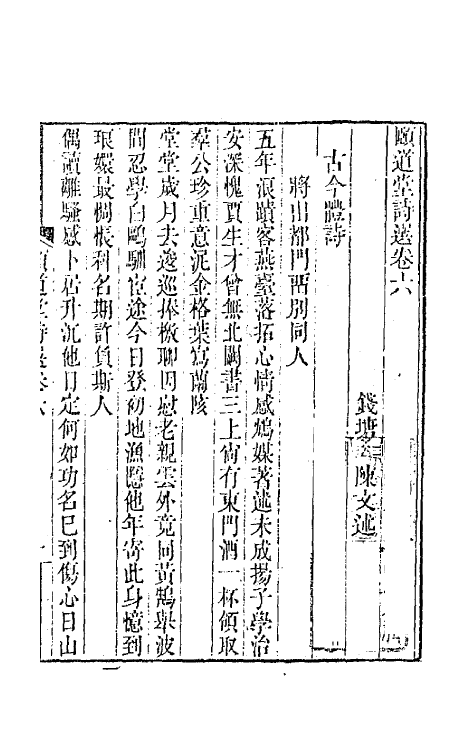 頤道堂詩選卷六
錢塘 陳文述
古今體詩
將出都門留別同人
五年浪蹟客燕臺落拓心情感鴆媒著述未成揚子學治
安深愧賈生才曾無北闕書三上尙有東門酒一杯領取
羣公珍重意泥金格葉寫蘭陔
堂堂歲月去逡巡捧檄聊因慰老親雲外竟同黃鵠舉波
間忍學白鷗馴宦途今日登初地漁隱他年寄此身憶到
琅嬛最惆悵科名期許負斯人
偶讀離騷感卜居升沉他日定何如功名已到傷心日山
頤道堂詩選卷六 一